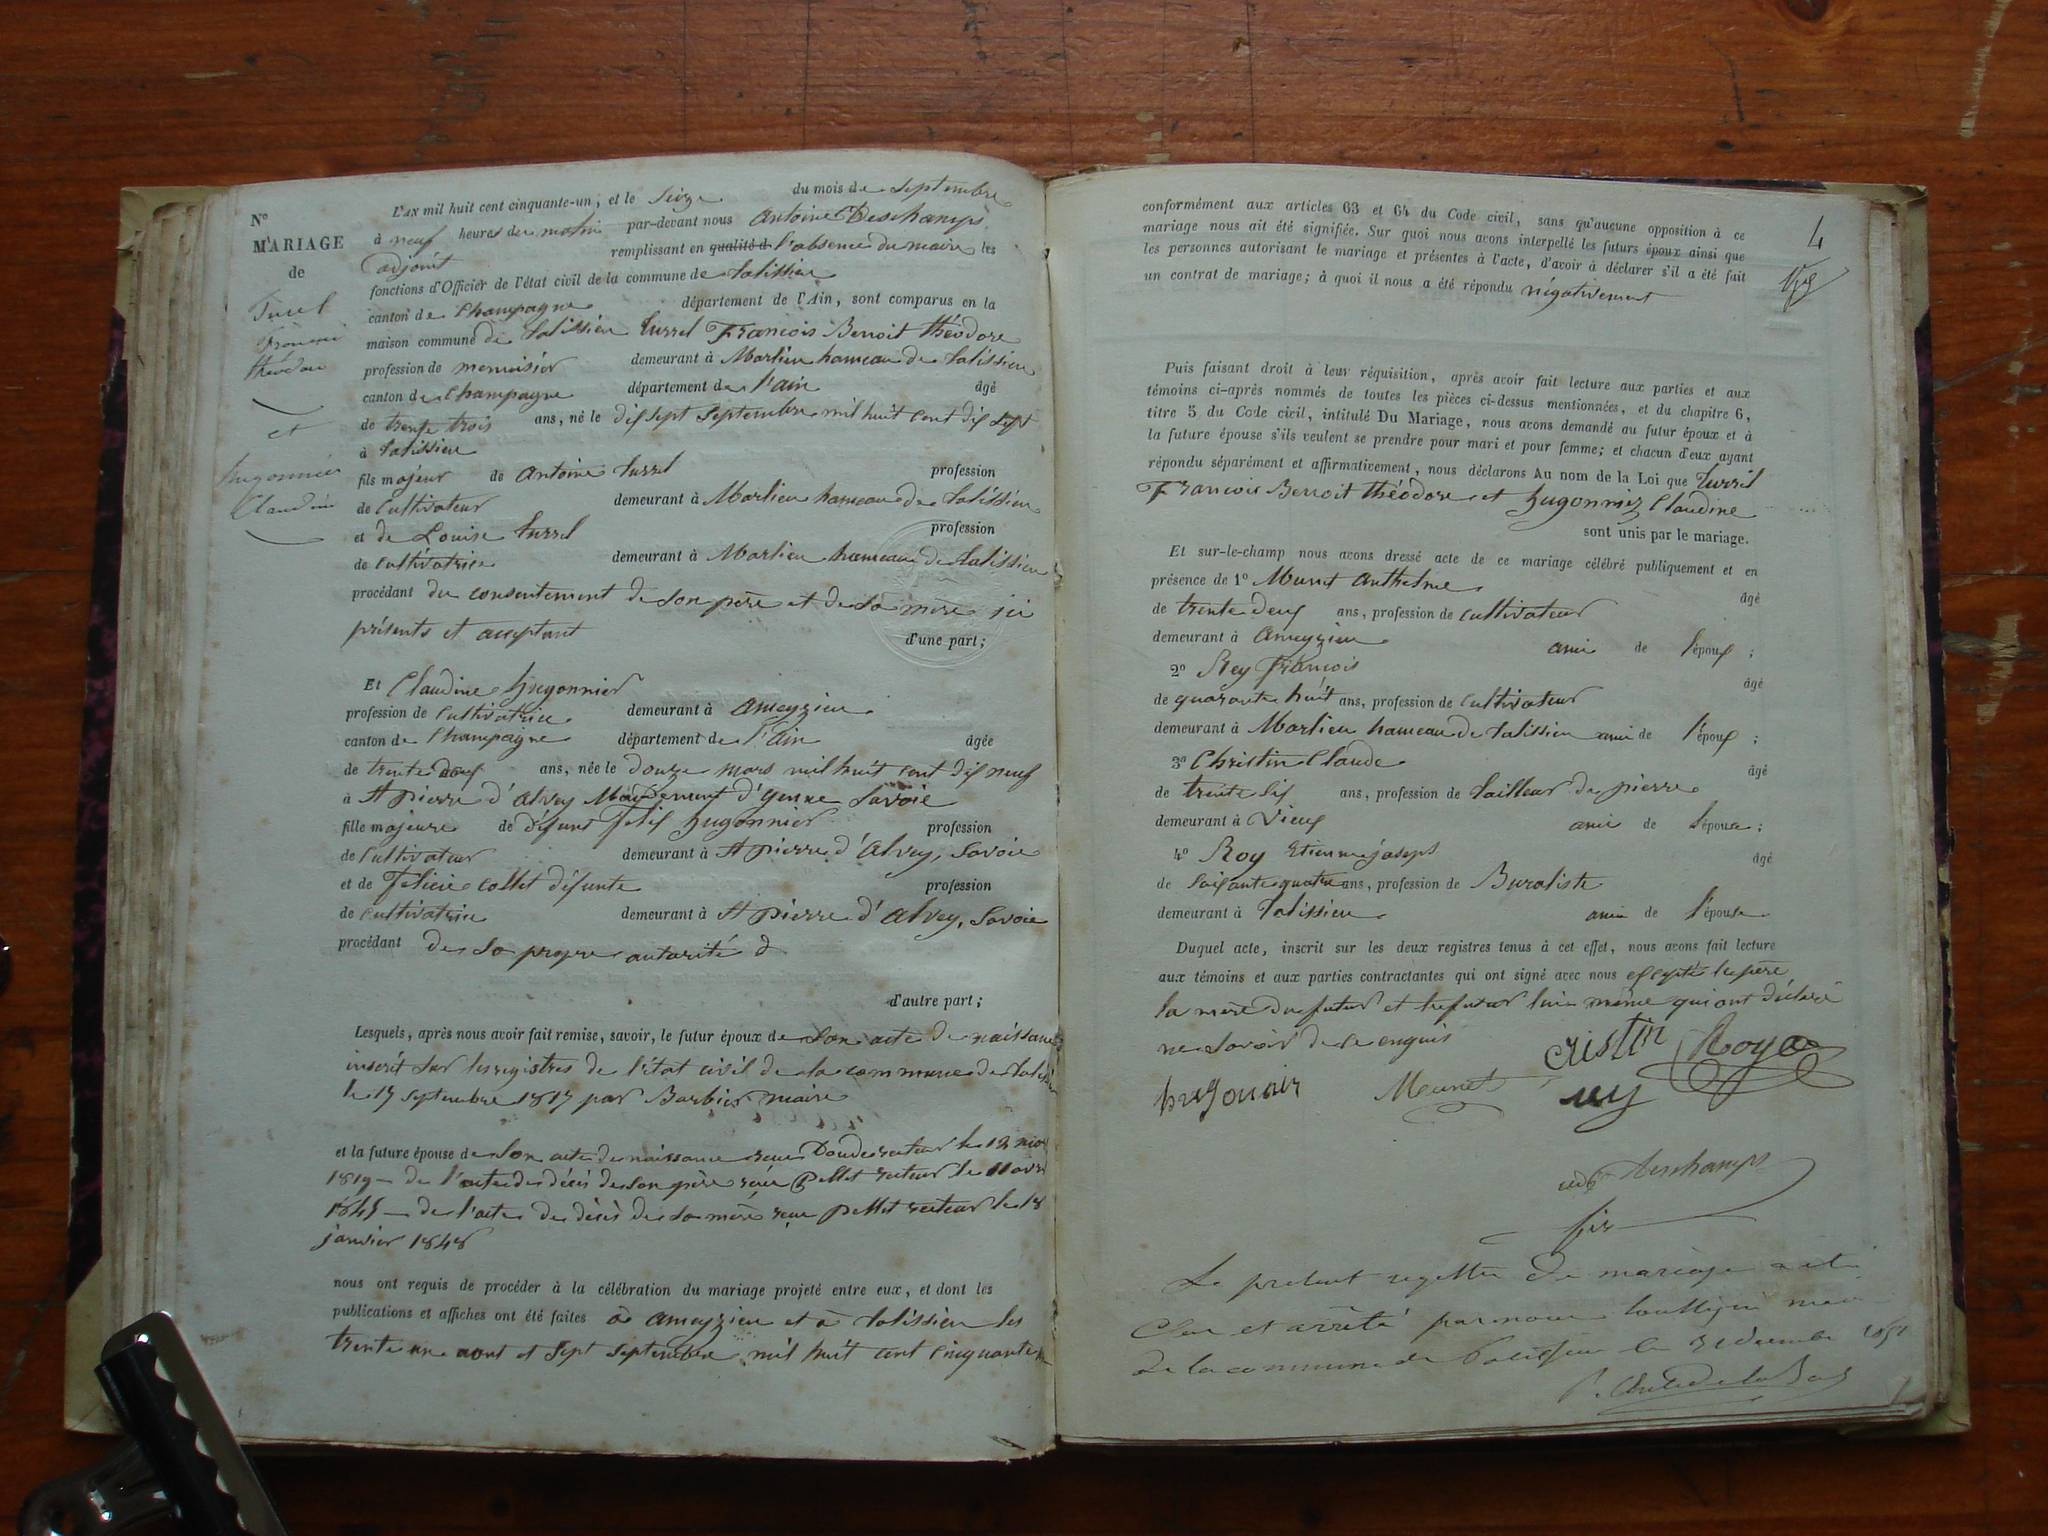 N°
MARIAGE
de
Turel
François
théodore
et
hugonnier
Claudine
L'AN mil huit cent cinquante-un; et le Seize du mois de Septembre
à neuf heures du matin par-devant nous Antoine Deschamps
adjoint remplissant en qualité d l'absence du maire les
fonctions d'Officier de l'état civil de la commune de talissieu
canton de Champagne département de l'Ain, sont comparus en la
maison commune de talissieu turrel François Benoit théodore
profession de menuisier demeurant à Marlieu hameau de talissieu
canton de Champagne département de l'ain âgé
de trente trois ans, né le dix sept Septembre mil huit cent dix Sept
à talissieu
fils majeur de Antoine turrel profession
de Cultivateur demeurant à Marlieu hameau de talissieu
et de Louise turrel profession
de Cultivatrice demeurant à Marlieu hameau de talissieu
procédant du consentement de Son père et de Sa mère ici
présents et acceptant d'une part;
Et Claudine hugonnier
profession de Cultivatrice demeurant à Ameyzieu
canton de Champagne département de l'ain âgée
de trente deux ans, née le douze mars mil huit cent dix neuf
à St pierre d'Alvey Mandement d'yenne Savoie
fille majeure de défunt felix hugonnier profession
de Cultivateur demeurant à St pierre d'Alvey, Savoie
et de felicie collet défunte profession
de Cultivatrice demeurant à St pierre d'Alvey, Savoie
procédant de Sa propre autorité d
d'autre part;
Lesquels, après nous avoir fait remise, savoir, le futur époux de Son acte de naissance
inscrit Sur les registres de l'état civil de la commune de
le 17 Septembre 1817 par Barbier maire
et la future épouse de Son acte de naissance recteur le 12
1819 de l'acte de décès de Son père pellet recteur le 11
de l'acte de décès de Sa mère pellet recteur le 18
janvier 1848
nous ont requis de procéder à la célébration du mariage projeté entre eux, et dont les
publications et affiches ont été faites à Ameyzieu et à talissieu les
trente un aout et Sept Septembre mil huit cent cinquante
4
conformément aux articles 63 et 64 du Code civil, sans qu'aucune opposition à ce
mariage nous ait été signifiée. Sur quoi nous avons interpellé les futurs époux ainsi que
les personnes autorisant le mariage et présentes à l'acte, d'avoir à déclarer s'il a été fait
un contrat de mariage; à quoi il nous a été répondu négativement
Puis faisant droit à leur réquisition, après avoir fait lecture aux parties et aux
témoins ci-après nommés de toutes les pièces ci-dessus mentionnées, et du chapitre 6,
titre 5 du Code civil, intitulé Du Mariage, nous avons demandé au futur époux et à
la future épouse s'ils veulent se prendre pour mari et pour femme; et chacun d'eux ayant
répondu séparément et affirmativement, nous déclarons Au nom de la Loi que turrel
François Benoit théodore et hugonnier Claudine
sont unis par le mariage.
Et sur-le-champ nous avons dressé acte de ce mariage célébré publiquement et en
présence de 1° Munet Anthelme âgé
de trente deux ans, profession de Cultivateur
demeurant à Ameyzieu ami de l'époux;
2° Rey François âgé
de quarante huit ans, profession de Cultivateur
demeurant à Marlieu hameau de talissieu ami de l'époux;
3° Christin Claude âgé
de trente Six ans, profession de tailleur de pierre
demeurant à Vieux ami de l'épouse;
4° Roy Etienne joseph âgé
de Soixante quatre ans, profession de Buraliste
demeurant à talissieu ami de l'épouse
Duquel acte, inscrit sur les deux registres tenus à cet effet, nous avons fait lecture
aux témoins et aux parties contractantes qui ont signé avec nous excepté le père
la mère du futur et le futur lui même qui ont déclaré
ne Savoir de ce enquis
cristin Roy
hugonnir Meunet rey
Deschamps
Le présent registre de mariage a été
Clos et arrêté par nous soussigné maire
de la commune de talissieu le 31 décembre 1851